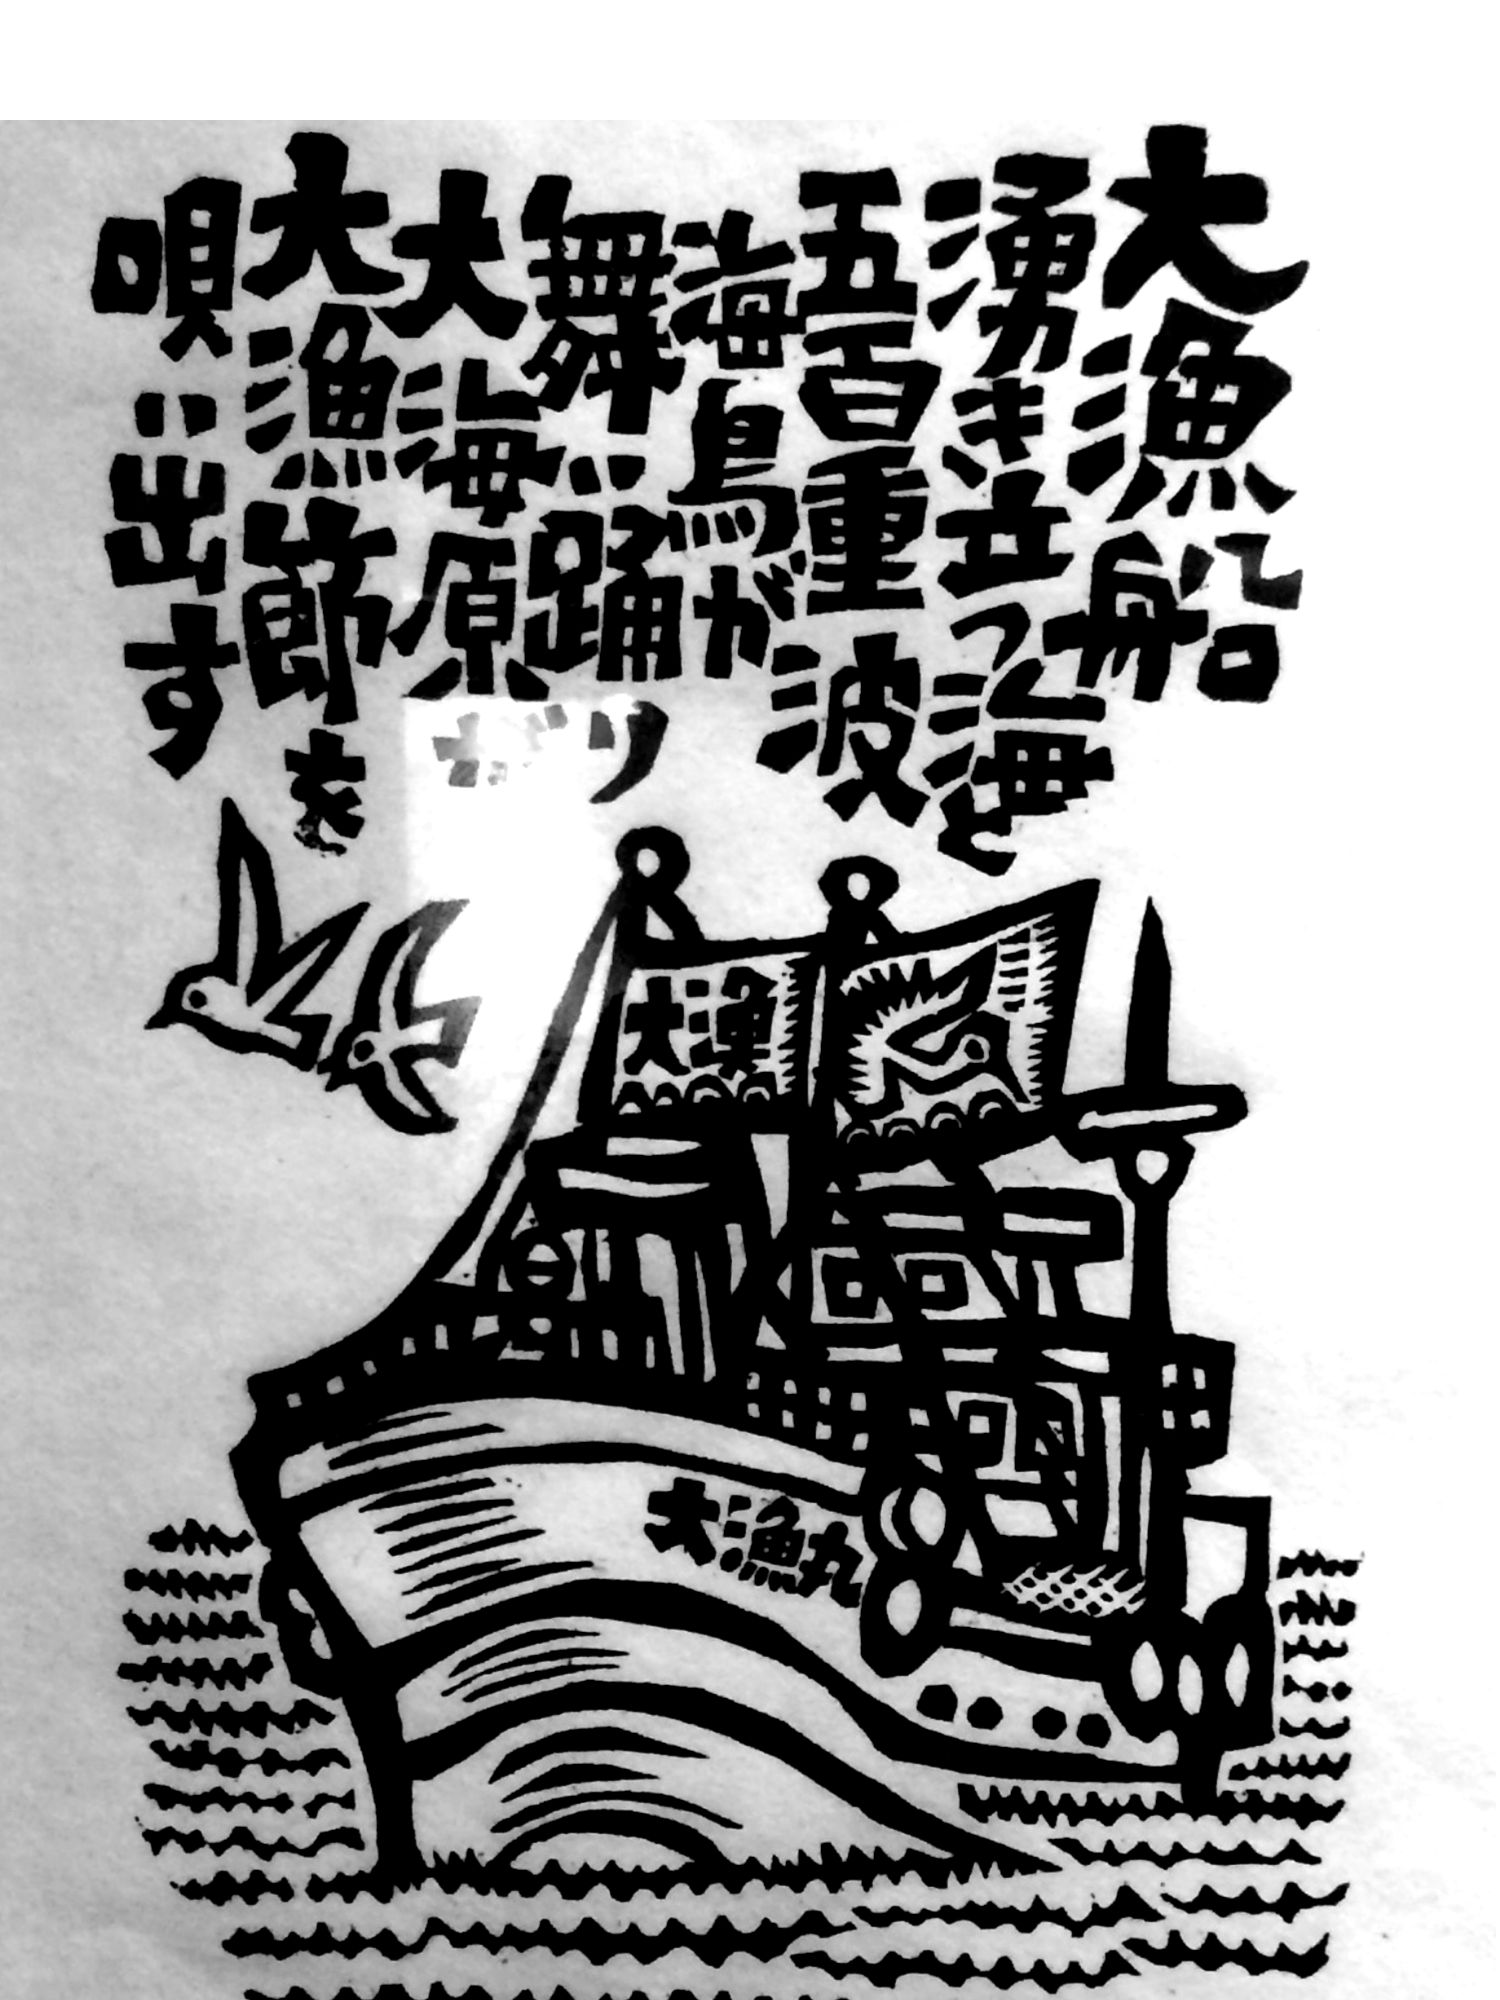 大漁船
湧き立つ海と
五百重波
海鳥が
舞い踊り
大海原が
大漁節を
唄い出す
大漁
大漁丸